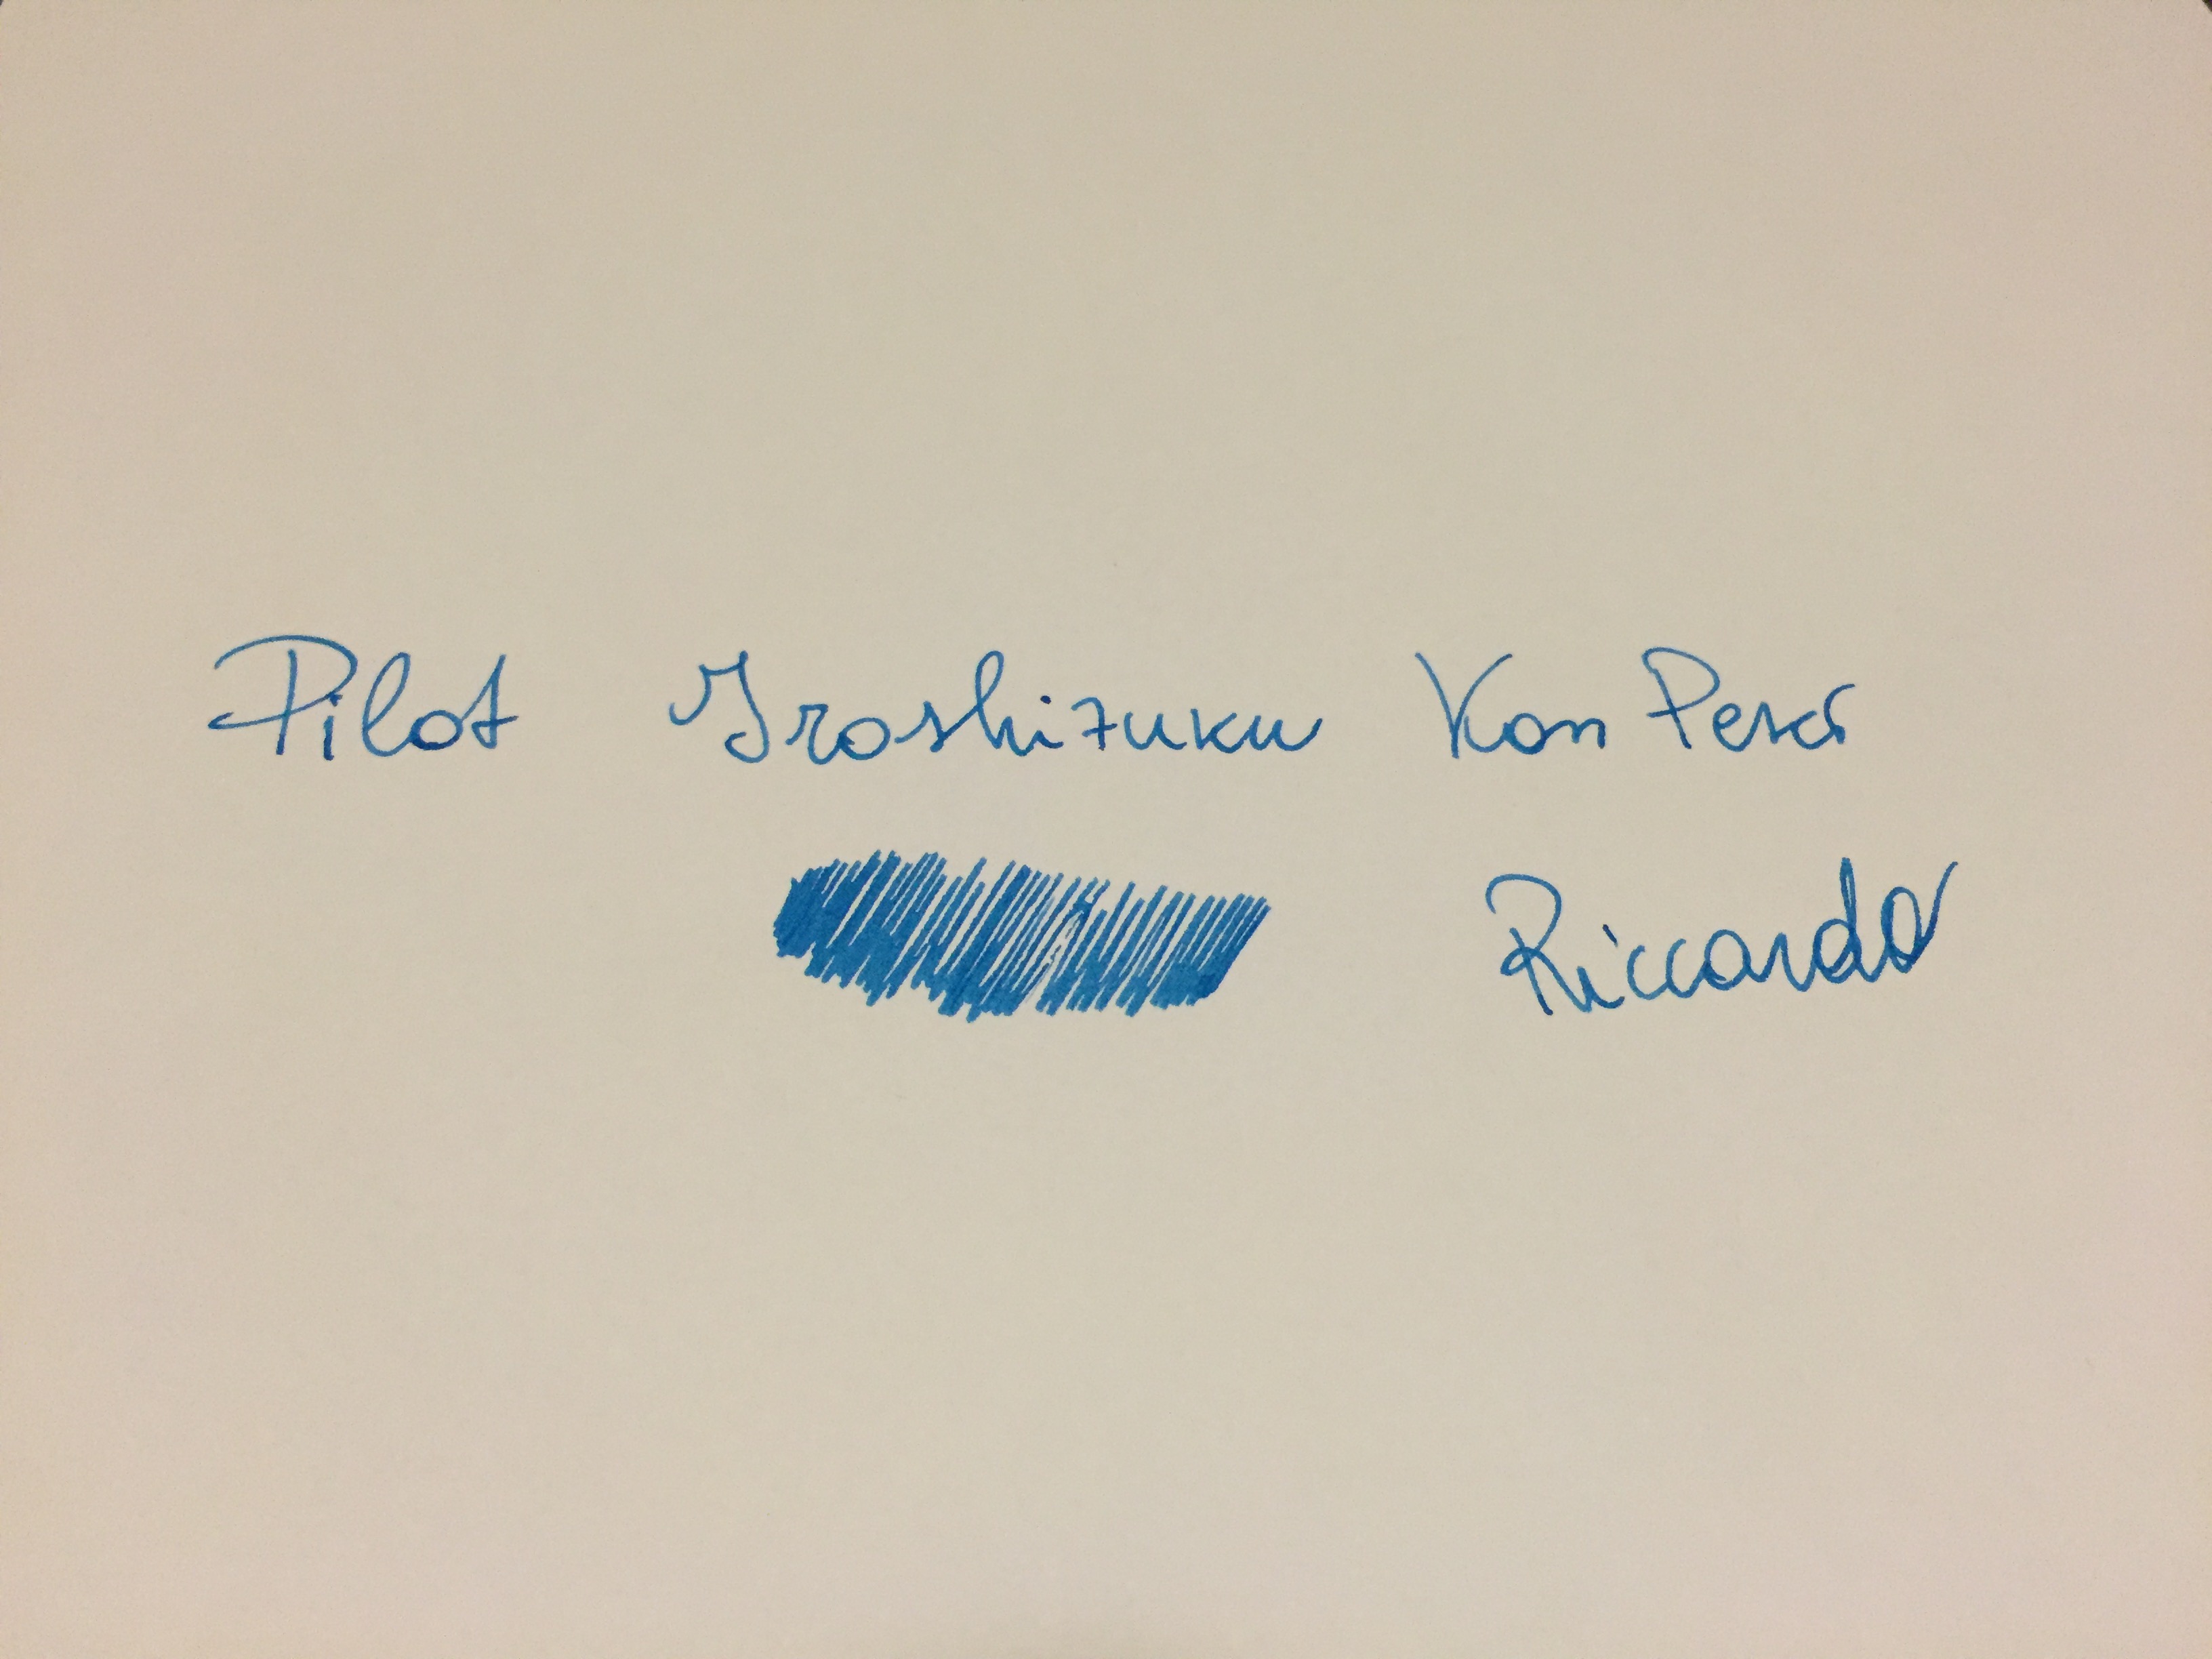 Pilot Iroshizuku Kon Peki
Riccardo